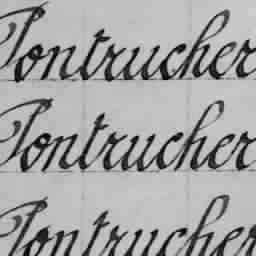 Pontrucher
Pontrucher
Pontrucher